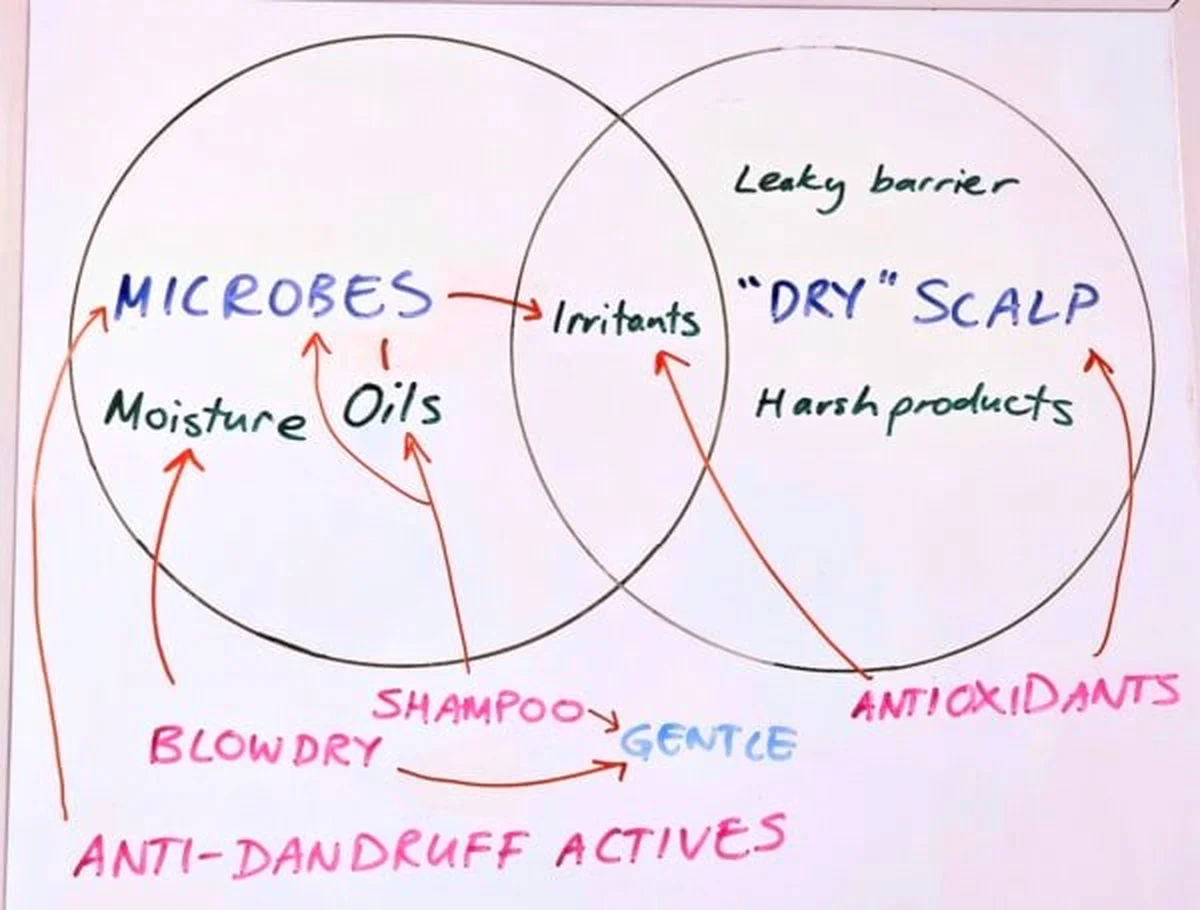 Leaky barrier
MICROBES
Irritants
"DRY" SCALP
Moisture
Oils
Harsh products
SHAMPOO
GENTLE
ANTIOXIDANTS
BLOWDRY
ANTI-DANDRUFF ACTIVES